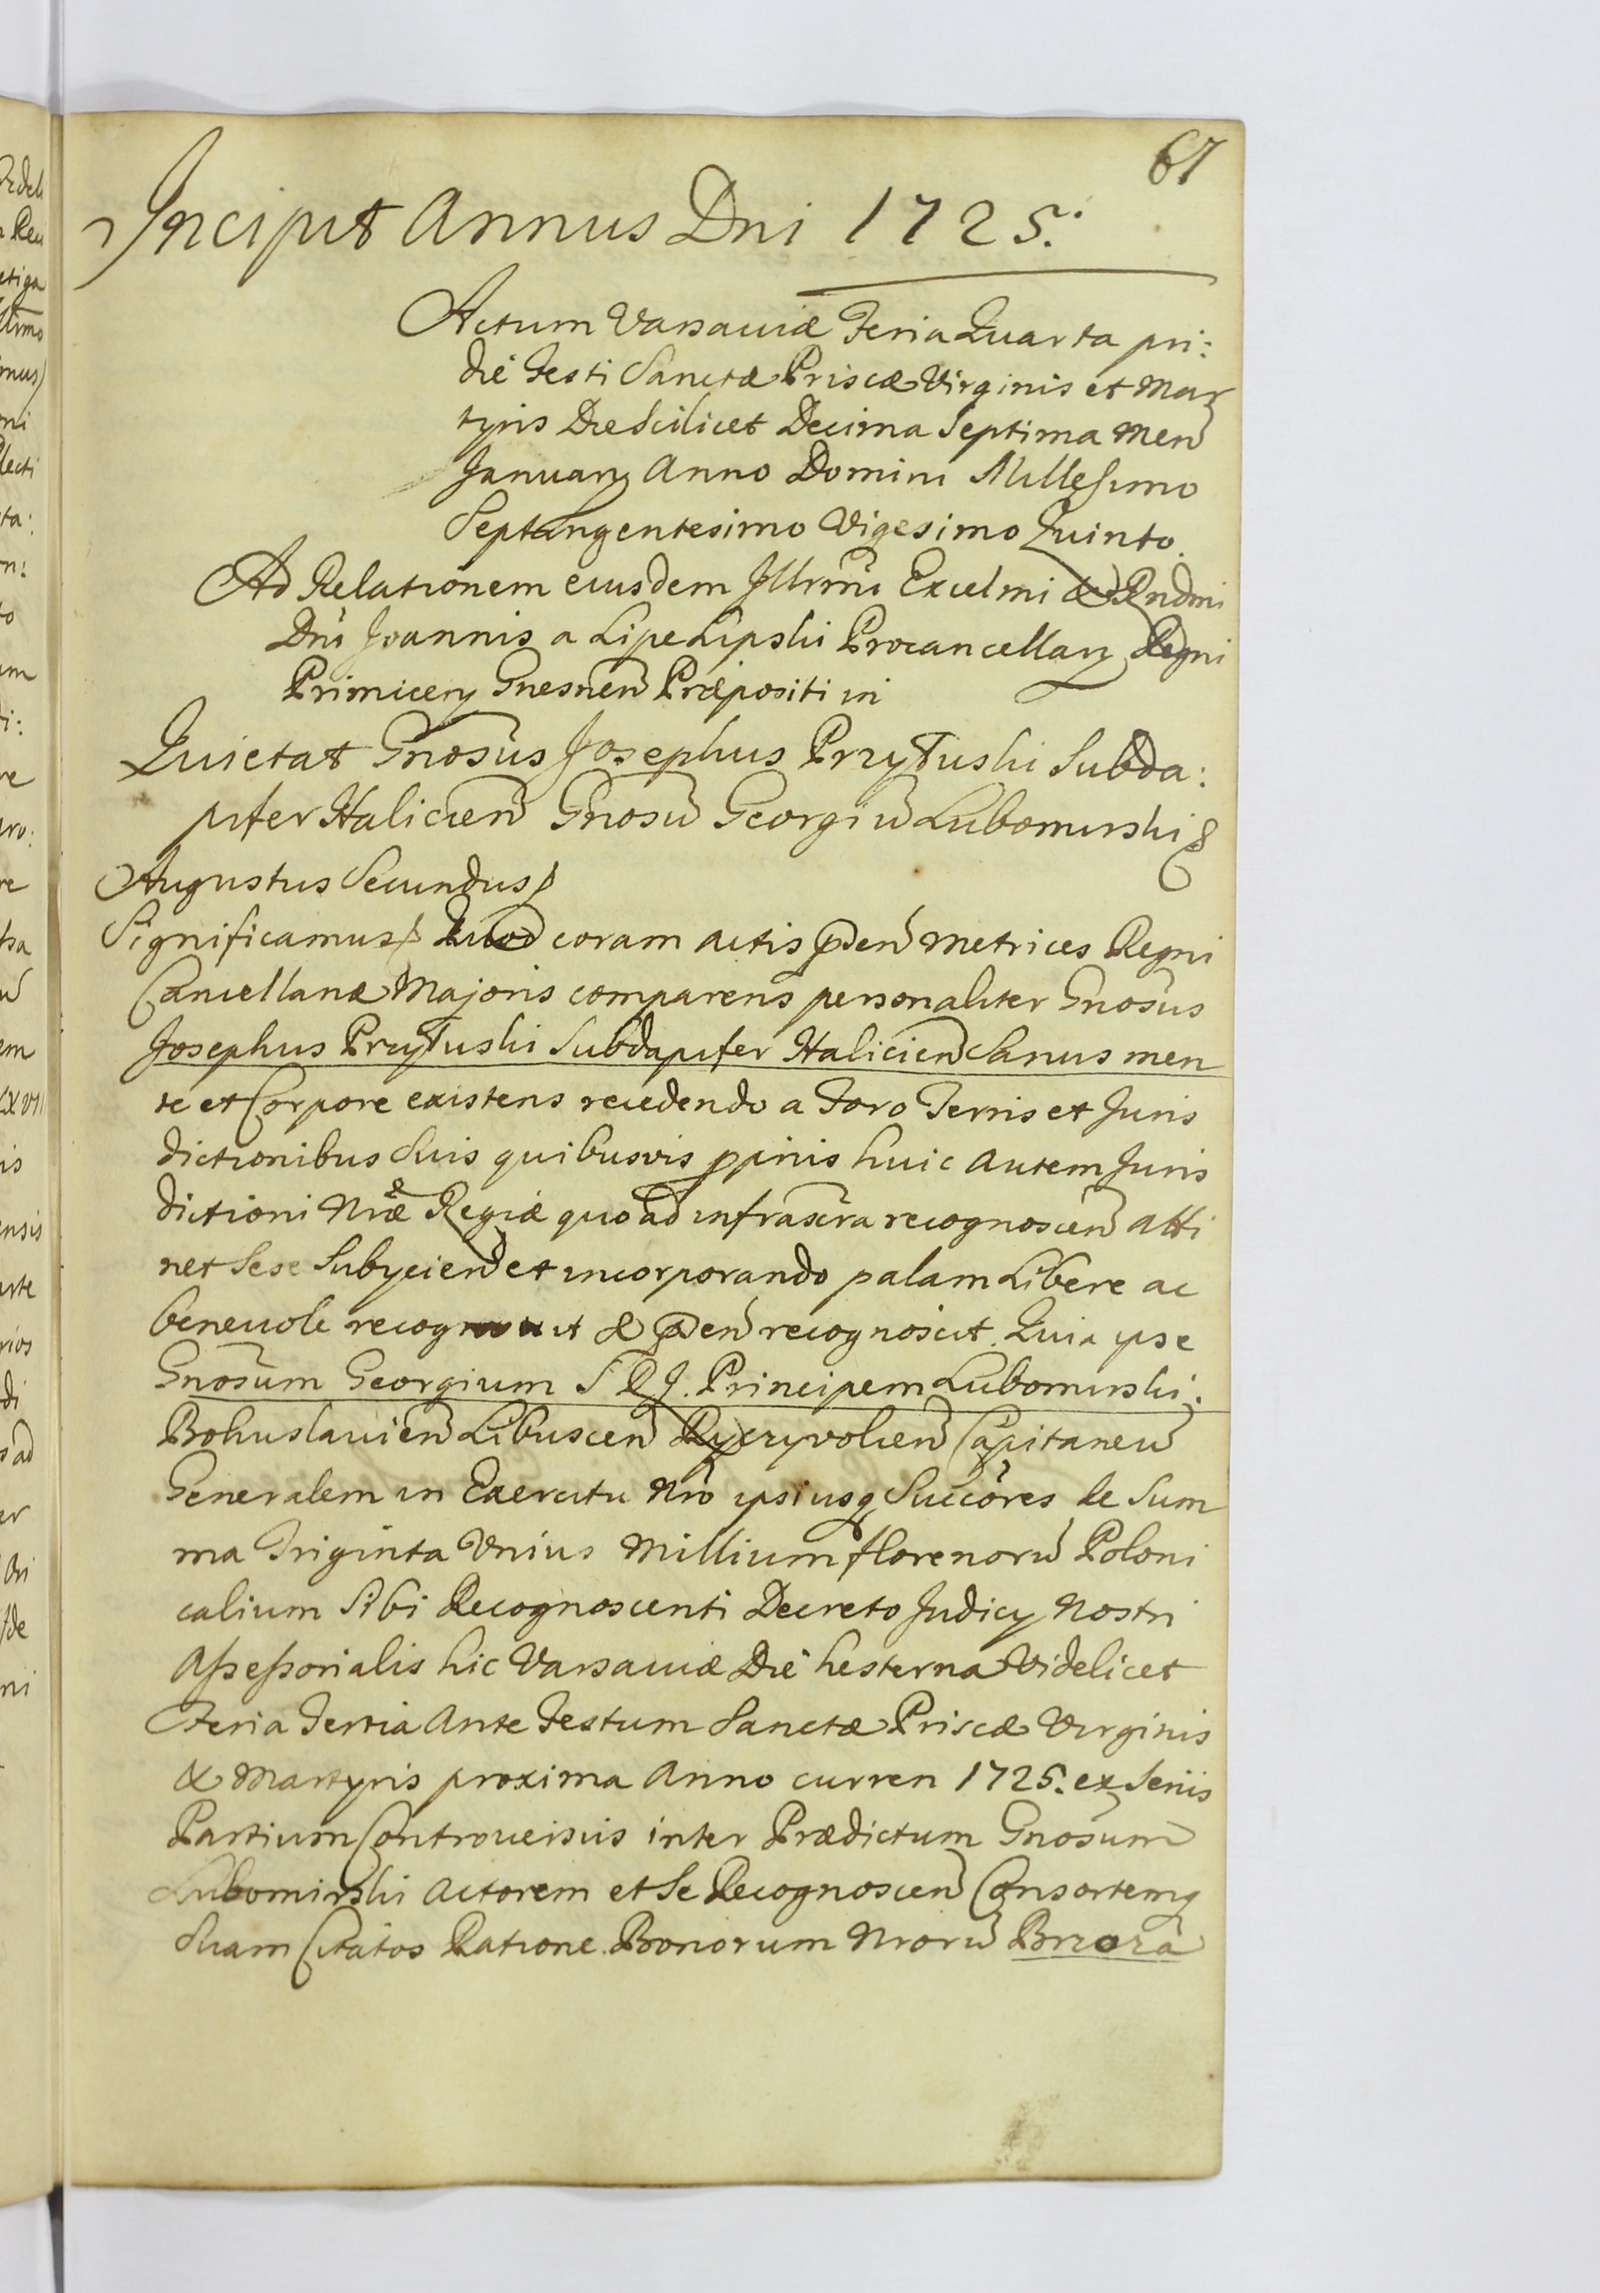 67
Incipit Annus Dni 1725.
Actum Varsaviæ Feria Quarta pri:
die Festi Sanctæ Priscæ Virginis et Mar
tyris Die Scilicet Decima Septima Men
January Anno Domini Millesimo
Septingentesimo Vigesimo Quinto.
Ad Relationem eiusdem Illrmi Excelmi & Rndmi
Dni Joannis a Lipe Lipski Procancellary Regni
Primicery Gnesnen Præpositi in
Quietat Gnosus Josephus Przyłuski Subda:
pifer Halicien Gnosu Georgiu Lubomirski
Augustus Secundus
Significamus Quod coram actis pden Metrices Regni
Cancellariæ Majoris comparens personaliter Gnosus
Josephus Przyłuski Subdapifer Halicien Sanus men
te et Corpore existens recedendo a Foro Terris et Juris
dictionibus Suis quibusvis ppriis huic autem Juris
dictioni Nræ Regiæ quo ad infrascra recognoscen atti
net Sese Subyciend et incorporando palam Libere ac
benevole recog it & pden recognoscit. Quia ipse
Gnosum Georgium S R J. Principem Lubomirski.
Bohuslavien Libuscen Ryczyvolien Capitaneu
Generalem in Exercitu Nro ipsiusq Succores de Sum
ma Triginta Unius Millium florenoru Poloni
calium Sibi Recognoscenti Decreto Judicy Nostri
Assessorialis hic Varsaviæ Die hesterna Videlicet
Feria Tertia Ante Festum Sanctæ Priscæ Virginis
& Martyris proxima Anno curren 1725. ex Seriis
Partium Controversiis inter Prædictum Gnosum
Lubomirski Actorem et Se Recognoscen Consortemq
Suam Citatos Ratione Bonorum Nroru